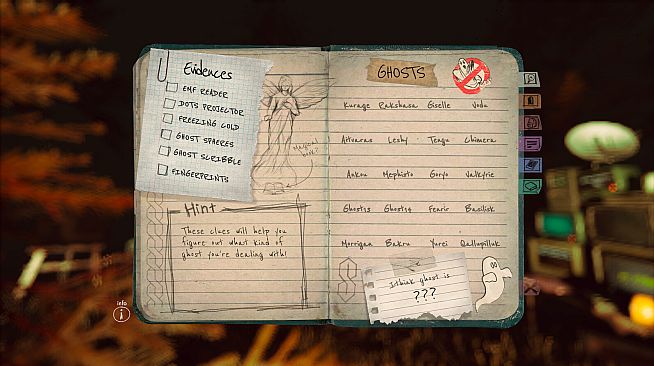 Evidences
EMF READER
DOTS PROJECTOR
FREEZING COLD
GHOST SPHERES
GHOST SCRIBBLE
FINGERPRINTS
Magical box?
Hint
These clues will help you
figure out what kind of
ghost you're dealing with!
info
i
GHOSTS
Kurage Rakshasa Giselle Vodu
Aitvaras Leshy Tengu Chimera
Ankou Mephisto Goryo Valkyrie
Ghost13 Ghost14 Fenrir Basilisk
Morrigan Bakru Yurei Qallupilluk
I think ghost is
???